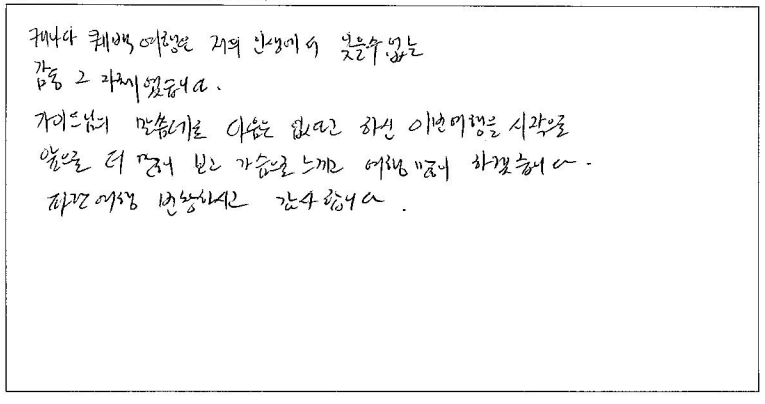 캐나다 퀘백 여행은 저의 인생에서 잊을수 없는
감동 그 자체였습니다.
가이드님의 말씀대로 다음은 없다고 하신 이번여행을 시작으로
앞으로 더 많이 보고 가슴으로 느끼고 여행 많이 하겠습니다.
파란여행 번창하시고 감사합니다.